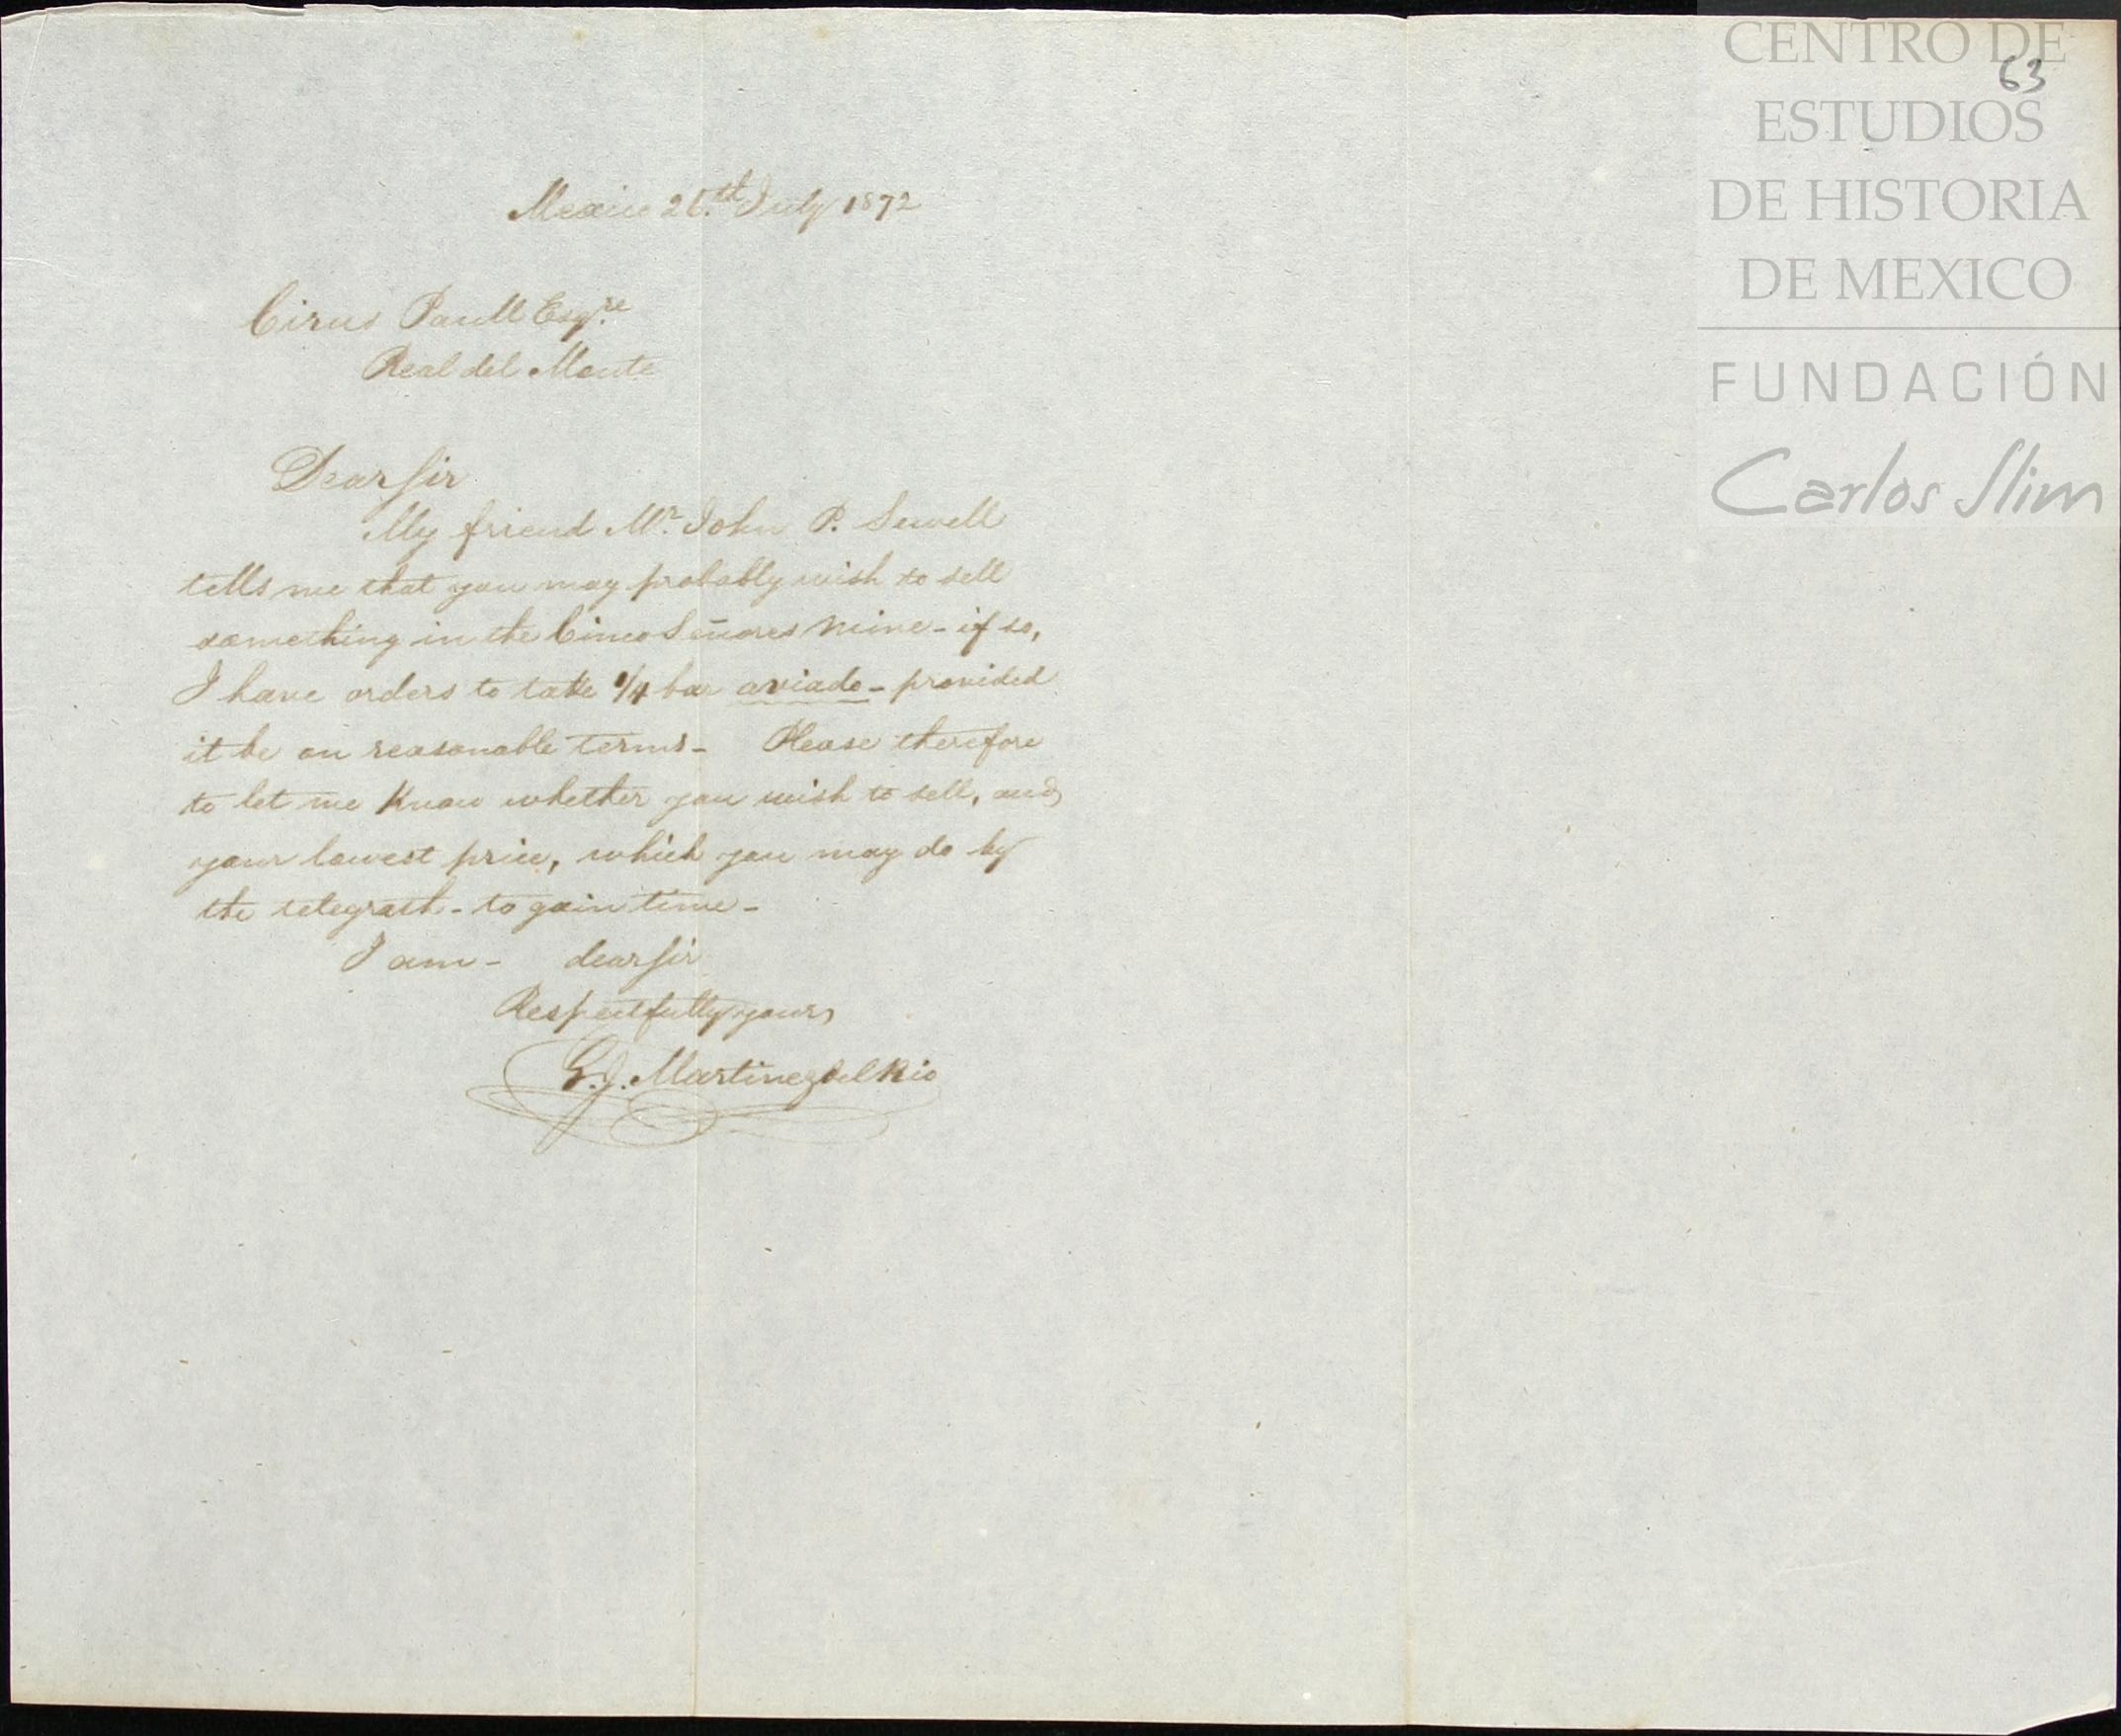 CENTRO DE
63
ESTUDIOS
DE HISTORIA
DE MEXICO
FUNDACIÓN
Carlos Slim
Mexico July 1872
Cirus Paull Esqre
Real del Monte
Dear Sir
My friend Mr. John P. Sewell
tells me that you may probably wish to sell
something in the Cinco Señores Mine - if so,
I have orders to take 1/4 bar aviado - provided
it be on reasonable terms - Please therefore
to let me Know whether you wish to sell, and
your lowest price, which you may do by
the telegrath - to gain time -
I am - dear Sir
Respectfully yours
G. J. Martinez del Rio